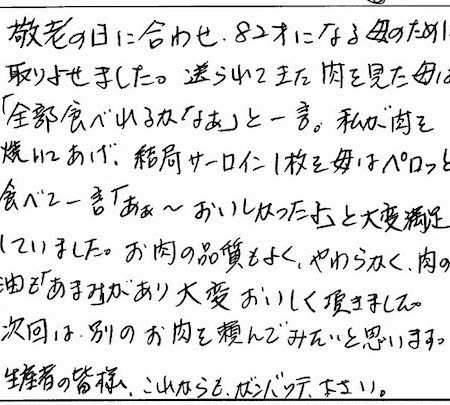 敬老の日に合わせ、82才になる母のために
取りよせました。送られてきた肉を見た母は
「全部食べれるかなぁ」と一言。私が肉を
焼いてあげ、結局サーロイン1枚を母はペロッと
食べて一言「あぁ～おいしかったよ」と大変満足
していました。お肉の品質もよく、やわらかく、肉の
油も「あまみ」があり大変おいしく頂きました。
次回は、別のお肉を頼んでみたいと思います。
生産者の皆様、これからも、ガンバッテ下さい。